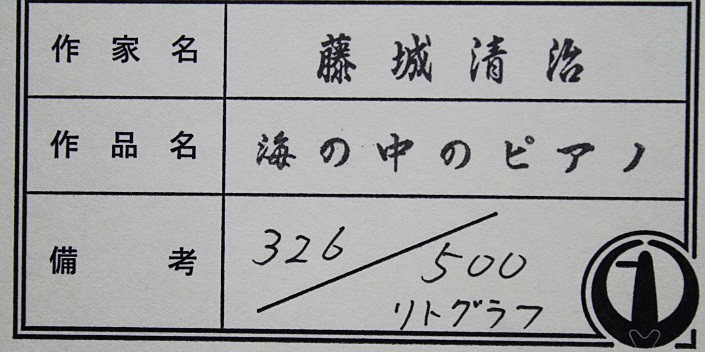 作家名 藤城清治
作品名 海の中のピアノ
備考 326/500
リトグラフ